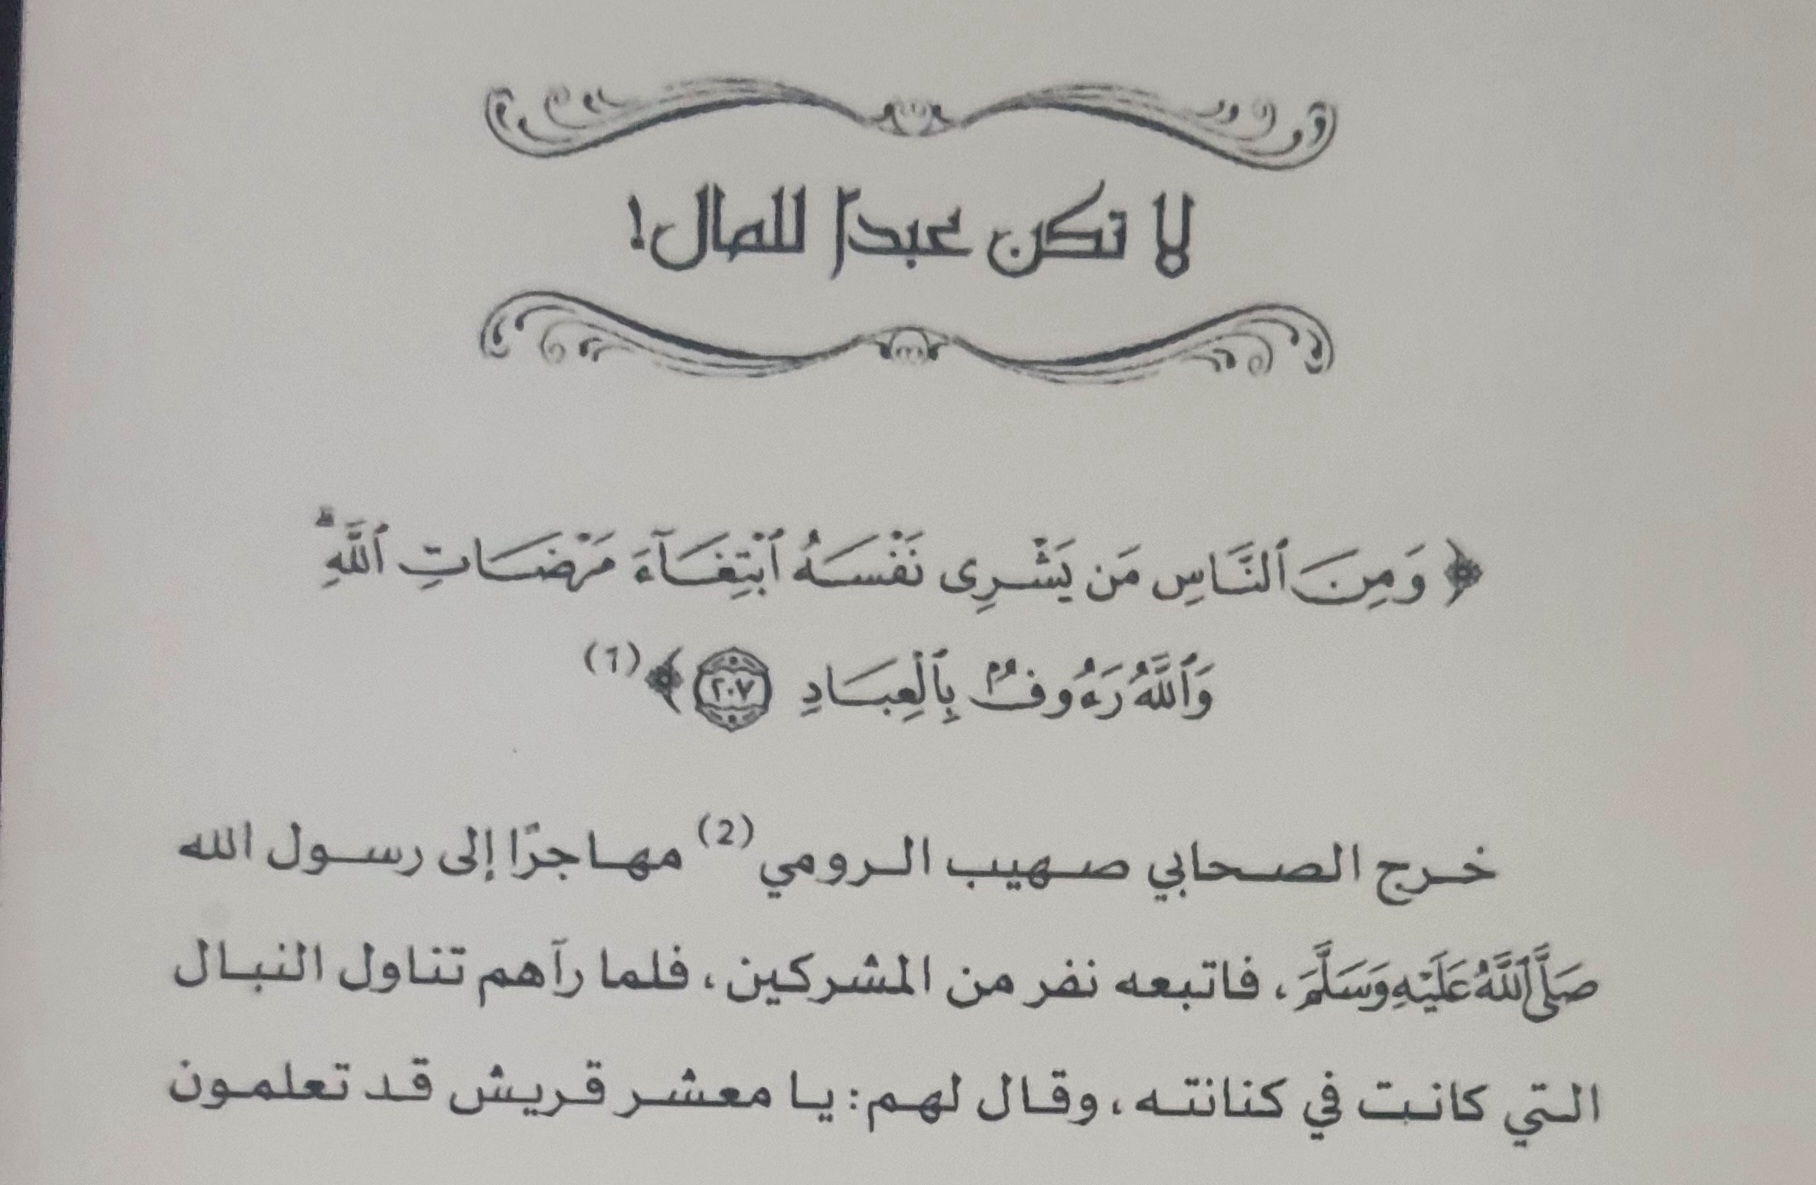 لا تكن عبدًا للمال!
﴿ وَمِنَ ٱلنَّاسِ مَن يَشْرِى نَفْسَهُ ٱبْتِغَآءَ مَرْضَاتِ ٱللَّهِۗ
وَٱللَّهُ رَءُوفٌۢ بِٱلْعِبَادِ ٢٠٧ ﴾(1)
خرج الصحابي صهيب الرومي(2) مهاجرًا إلى رسول الله
صَلَّى ٱللَّهُ عَلَيْهِ وَسَلَّمَ، فاتبعه نفر من المشركين، فلما رآهم تناول النبال
التي كانت في كنانته، وقال لهم: يا معشر قريش قد تعلمون